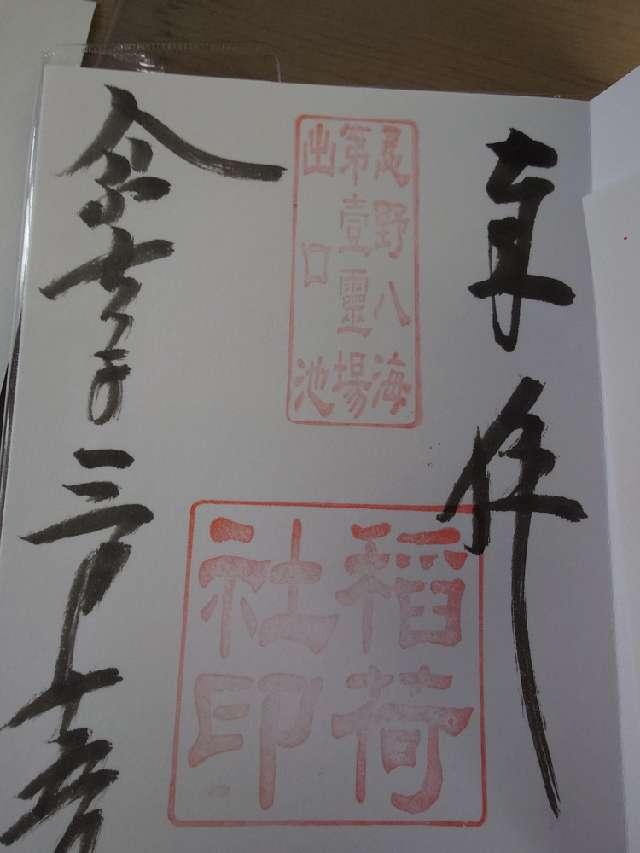 奉拝
忍野八海
第壹靈場
出口池
稲荷
社印
令 年三月十